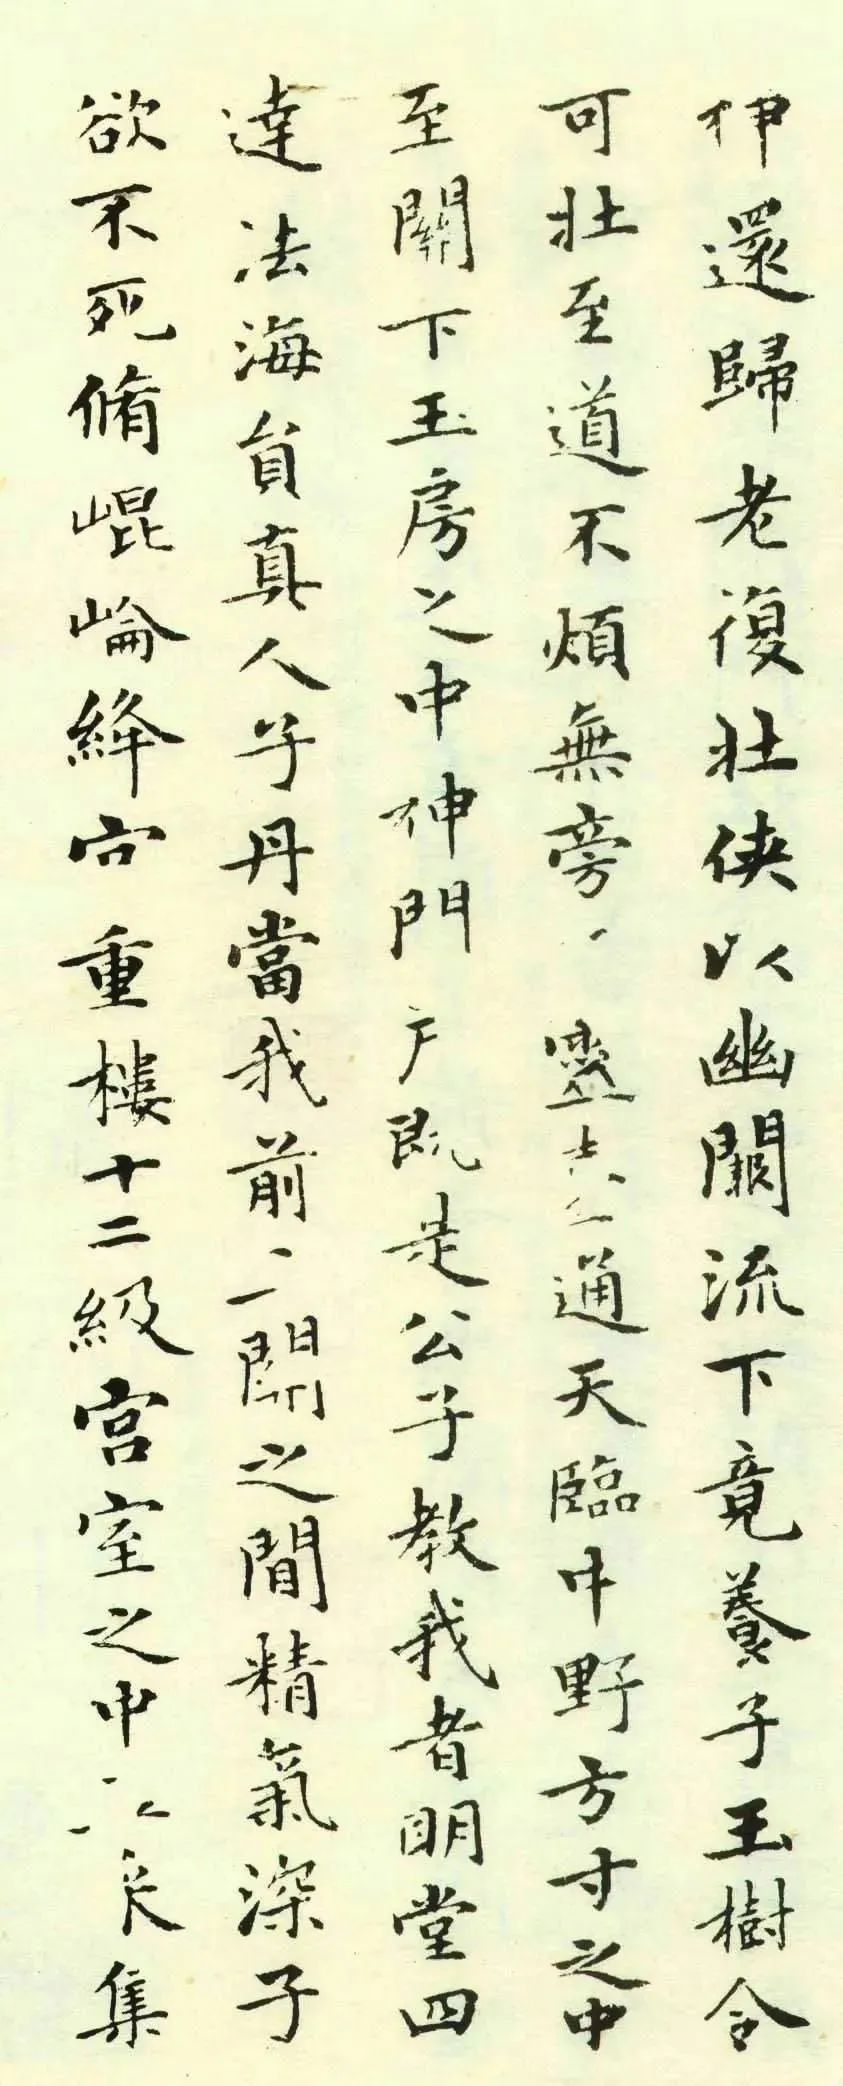 神還歸老復壯俠以幽闕流下竟養子玉樹令
可壯至道不煩無旁靈臺通天臨中野方寸之中
至關下玉房之中神門戶既是公子教我者明堂四
達法海員真人子丹當我前三關之間精氣深子
欲不死脩崐崘絳宮重樓十二級宮室之中五氣集